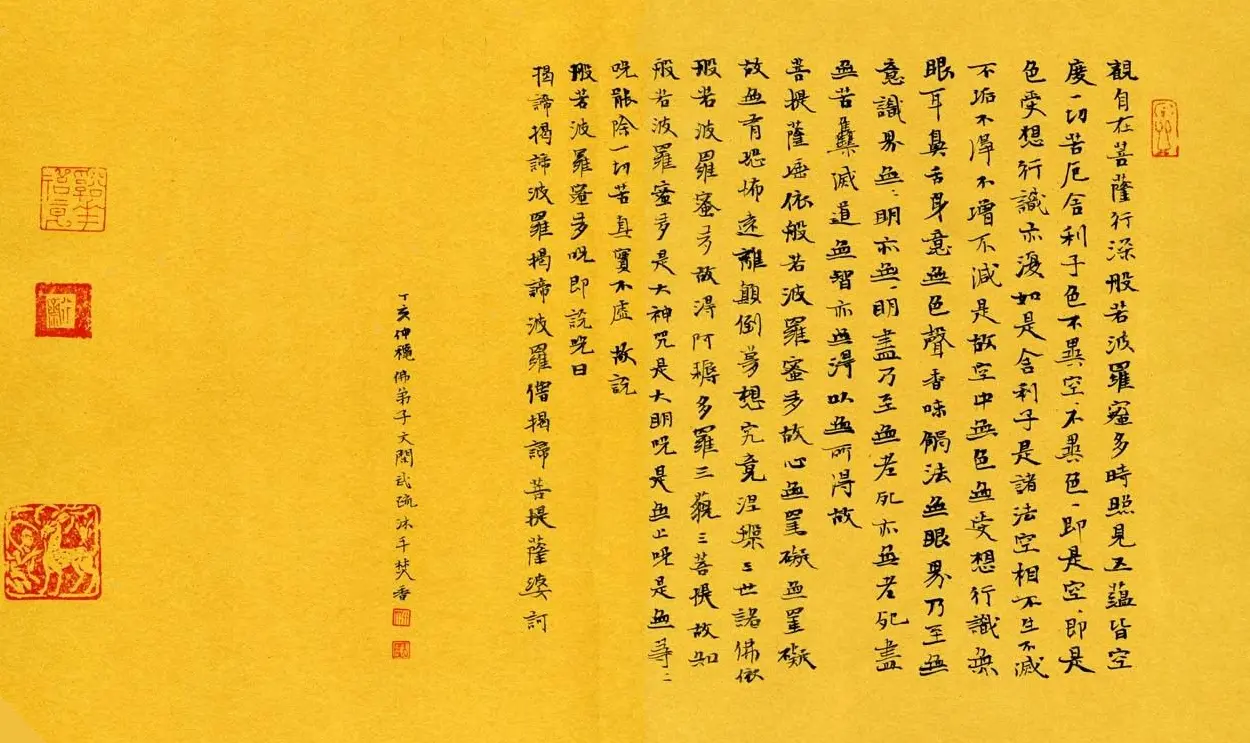 觀自在菩薩行深般若波羅蜜多時照見五蘊皆空
度一切苦厄舍利子色不異空、不異色、即是空、即是
色受想行識亦復如是舍利子是諸法空相不生不滅
不垢不淨不增不減是故空中無色無受想行識無
眼耳鼻舌身意無色聲香味觸法無眼界乃至無
意識界無〻明亦無、明盡乃至無老死亦無老死盡
無苦集滅道無智亦無得以無所得故
菩提薩埵依般若波羅蜜多故心無罣礙無罣礙
故無有恐怖遠離顛倒夢想究竟涅槃三世諸佛依
般若波羅蜜多故得阿耨多羅三藐三菩提故知
般若波羅蜜多是大神咒是大明咒是無上咒是無等〻
咒能除一切苦真實不虛故說
般若波羅蜜多咒即說咒曰
揭諦揭諦波羅揭諦波羅僧揭諦菩提薩婆訶
丁亥仲穐佛弟子文閣疏沐手焚香